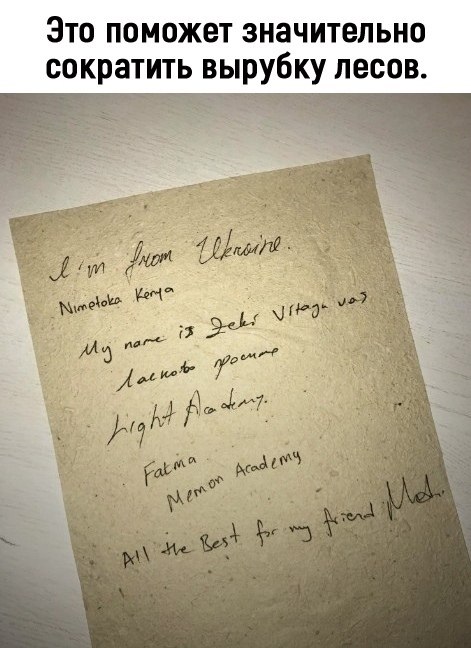 Это поможет значительно
сократить вырубку лесов.
I'm from Ukraine.
Nimetoka Kenya
My name is Zeki Vitayu vas
Ласкаво просимо
Light Academy.
Fatma
Memon Academy
All the Best for my friend